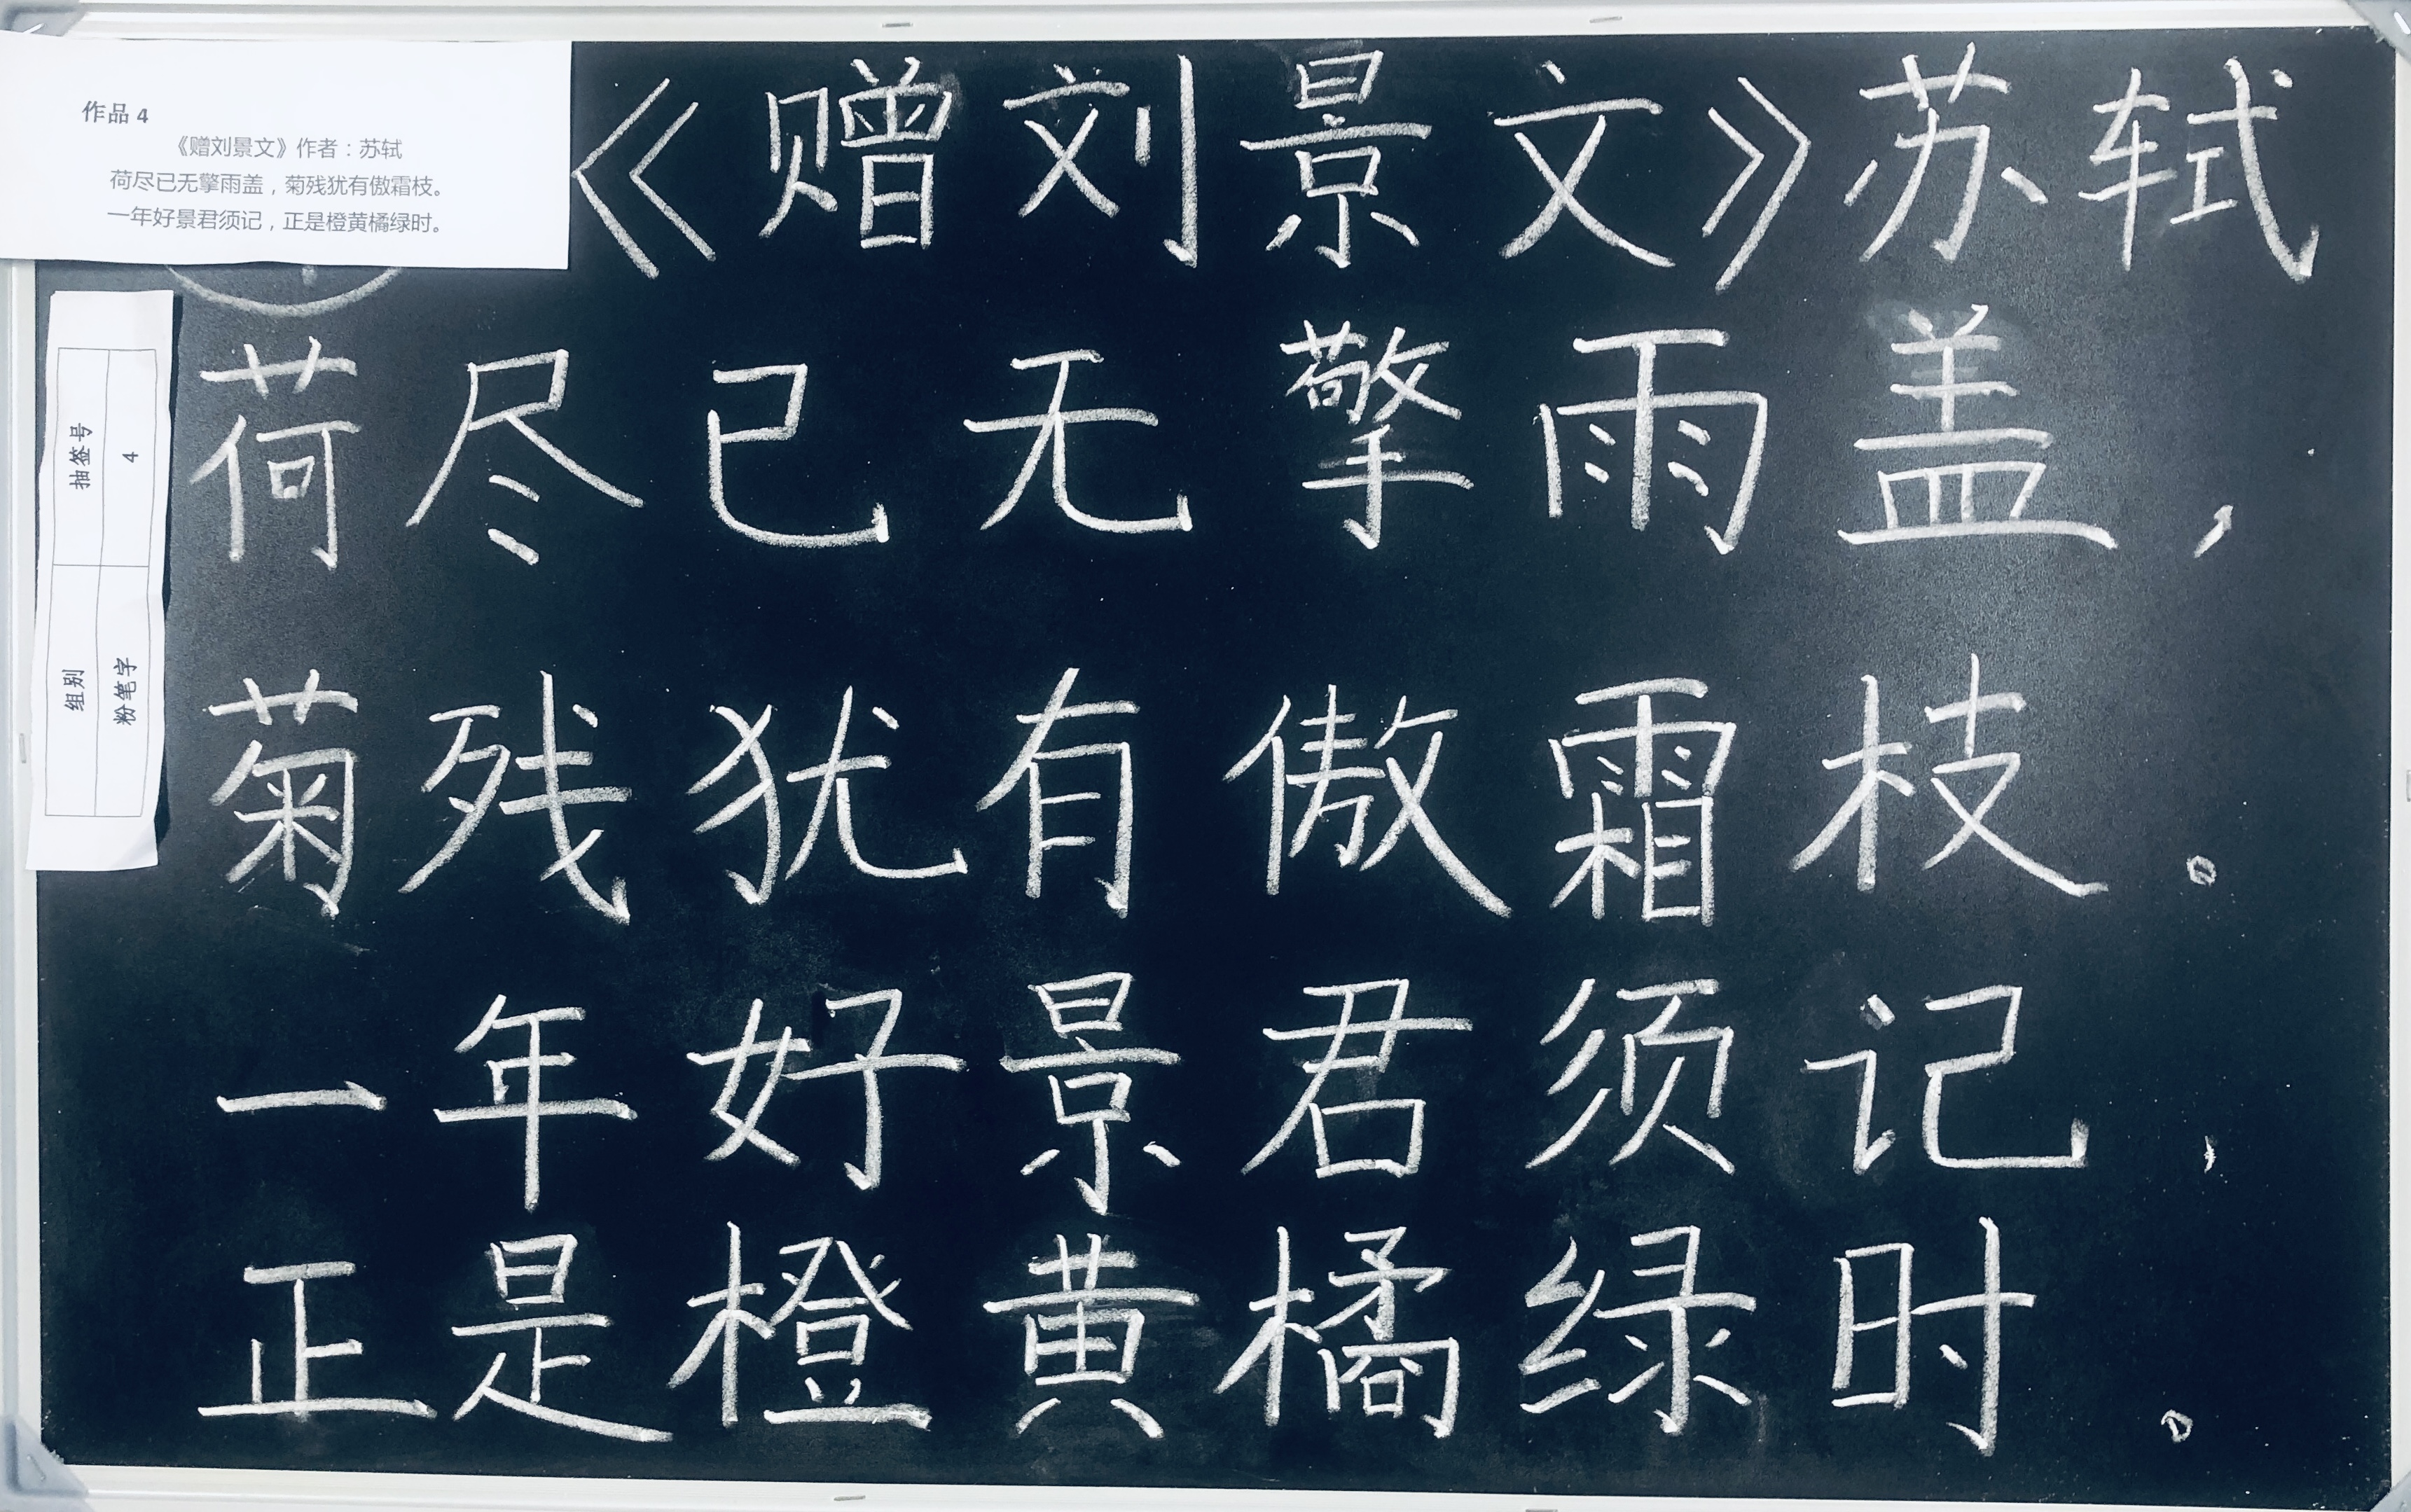 作品 4
《赠刘景文》作者：苏轼
荷尽已无擎雨盖，菊残犹有傲霜枝。
一年好景君须记，正是橙黄橘绿时。
组别 抽签号
粉笔字 4
《赠刘景文》苏轼
荷尽已无擎雨盖，
菊残犹有傲霜枝。
一年好景君须记，
正是橙黄橘绿时。